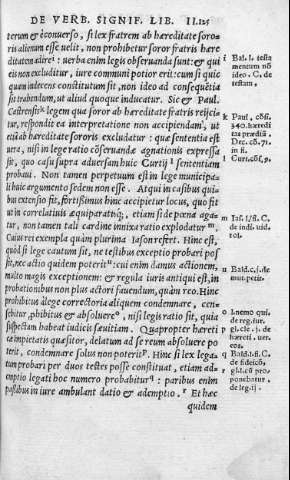 DE VERB. SIGNIF. LIB. II. 125
terum & econuerso, si lex fratrem ab hæreditate soro-
ris alienum esse uelit, non prohibetur soror fratris hære
ditatem adire i : uerba enim legis obseruanda sunt: & qui
eis non excluditur, iure communi potior erit: cum si quic
quam inderens constitutum sit, non ideo ad consequētia
sit trahendum, ut aliud quoque inducatur. Sic & Paul.
Castrensis k legem qua soror ab hæreditate fratris reijci
tur, respondit ea interpretatione non accipiendam, ut
etiā ab hæreditate sororis excludatur: quæ sententia est
uera, nisi in lege ratio cōseruandæ agnationis expressa
sit, quo casu supra aduersam huic Curtij l sententiam
probaui. Non tamen perpetuum est in lege municipa-
li huic argumento sedem non esse. Atqui in casibus quibus
extensio fit, fortissimus hinc accipietur locus, quo fit
ut in correlatiuis æquiparatiōe, etiam si de pœna aga-
tur, non tamen tali cardine innixa ratio explodatur m.
Cuius rei exempla quàm plurima Iason refert. Hinc est,
quòd si lege cautum sit, ne testibus exceptio probari pos
sit, nec actio quidem poterit n: cui enim damus actionem,
multo magis exceptionem: & regula iuris antiqui est, in
probationibus non plus actori fauendum, quàm reo. Hinc
prohibitus à lege correctoria aliquem condemnare, cen-
setur, phibitus & absoluere o, nisi legis ratio sit, quia
suspectam habeat iudicis sæuitiam. Quapropter hæreti
cæ impietatis quæsitor, delatum ad se reum absoluere po
terit, condemnare solus non poterit p. Hinc si lex lega-
tum probari per duos testes posse constituat, etiam ad-
emptio legati hoc numero probabitur q : paribus enim
passibus in iure ambulant datio & ademptio. r Et hæc
quidem
i Bal. l. testa
mentum nō
ideo. C. de
testam.
k Paul. cōsi.
340. hæredi
tas prædict.
l Curt. cōs. 9.
m Ias. l. si. C.
de indi. uid.
n Bald. c. j. de
mu. petit.
o l. nemo qui.
de reg. iur.
p gl. cle. j. de
hæreti. uer.
eos.
q Bald. l. fi. C.
de fideicō.
r ponebatur.
de leg. ij.